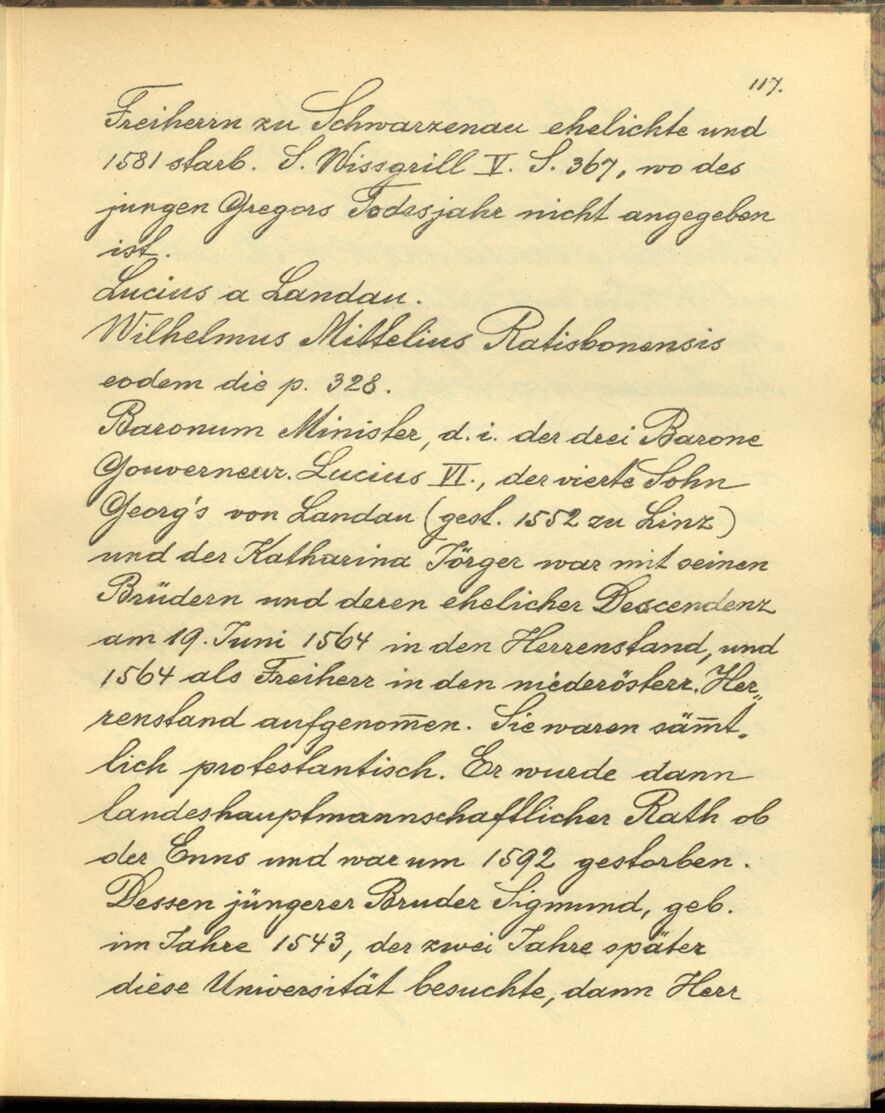 117.
Freiherrn zu Schwarzenau ehelichte und
1581 starb. S. Wissgrill V. S. 367, wo des
jungen Gregors Todesjahr nicht angegeben
ist.
Lucius a Landau.
Wilhelmus Mittelius Ratisbonensis
eodem die p. 328.
Baronum Minister, d. i. der drei Barone
Gouverneur. Lucius VI., der vierte Sohn
Georg's von Landau (gest. 1552 zu Linz)
und der Katharina Jörger war mit seinen
Brüdern und deren ehelicher Descendenz
am 19. Juni 1564 in den Herrenstand, und
1564 als Freiherr in den niederösterr. Her„
renstand aufgenom̅en. Sie waren säm̅t„
lich protestantisch. Er wurde dann
landeshauptmannschaftlicher Rath ob
der Enns und war um 1592 gestorben.
Dessen jüngerer Bruder Sigmund, geb.
im Jahre 1543, der zwei Jahre später
diese Universität besuchte, dann Herr